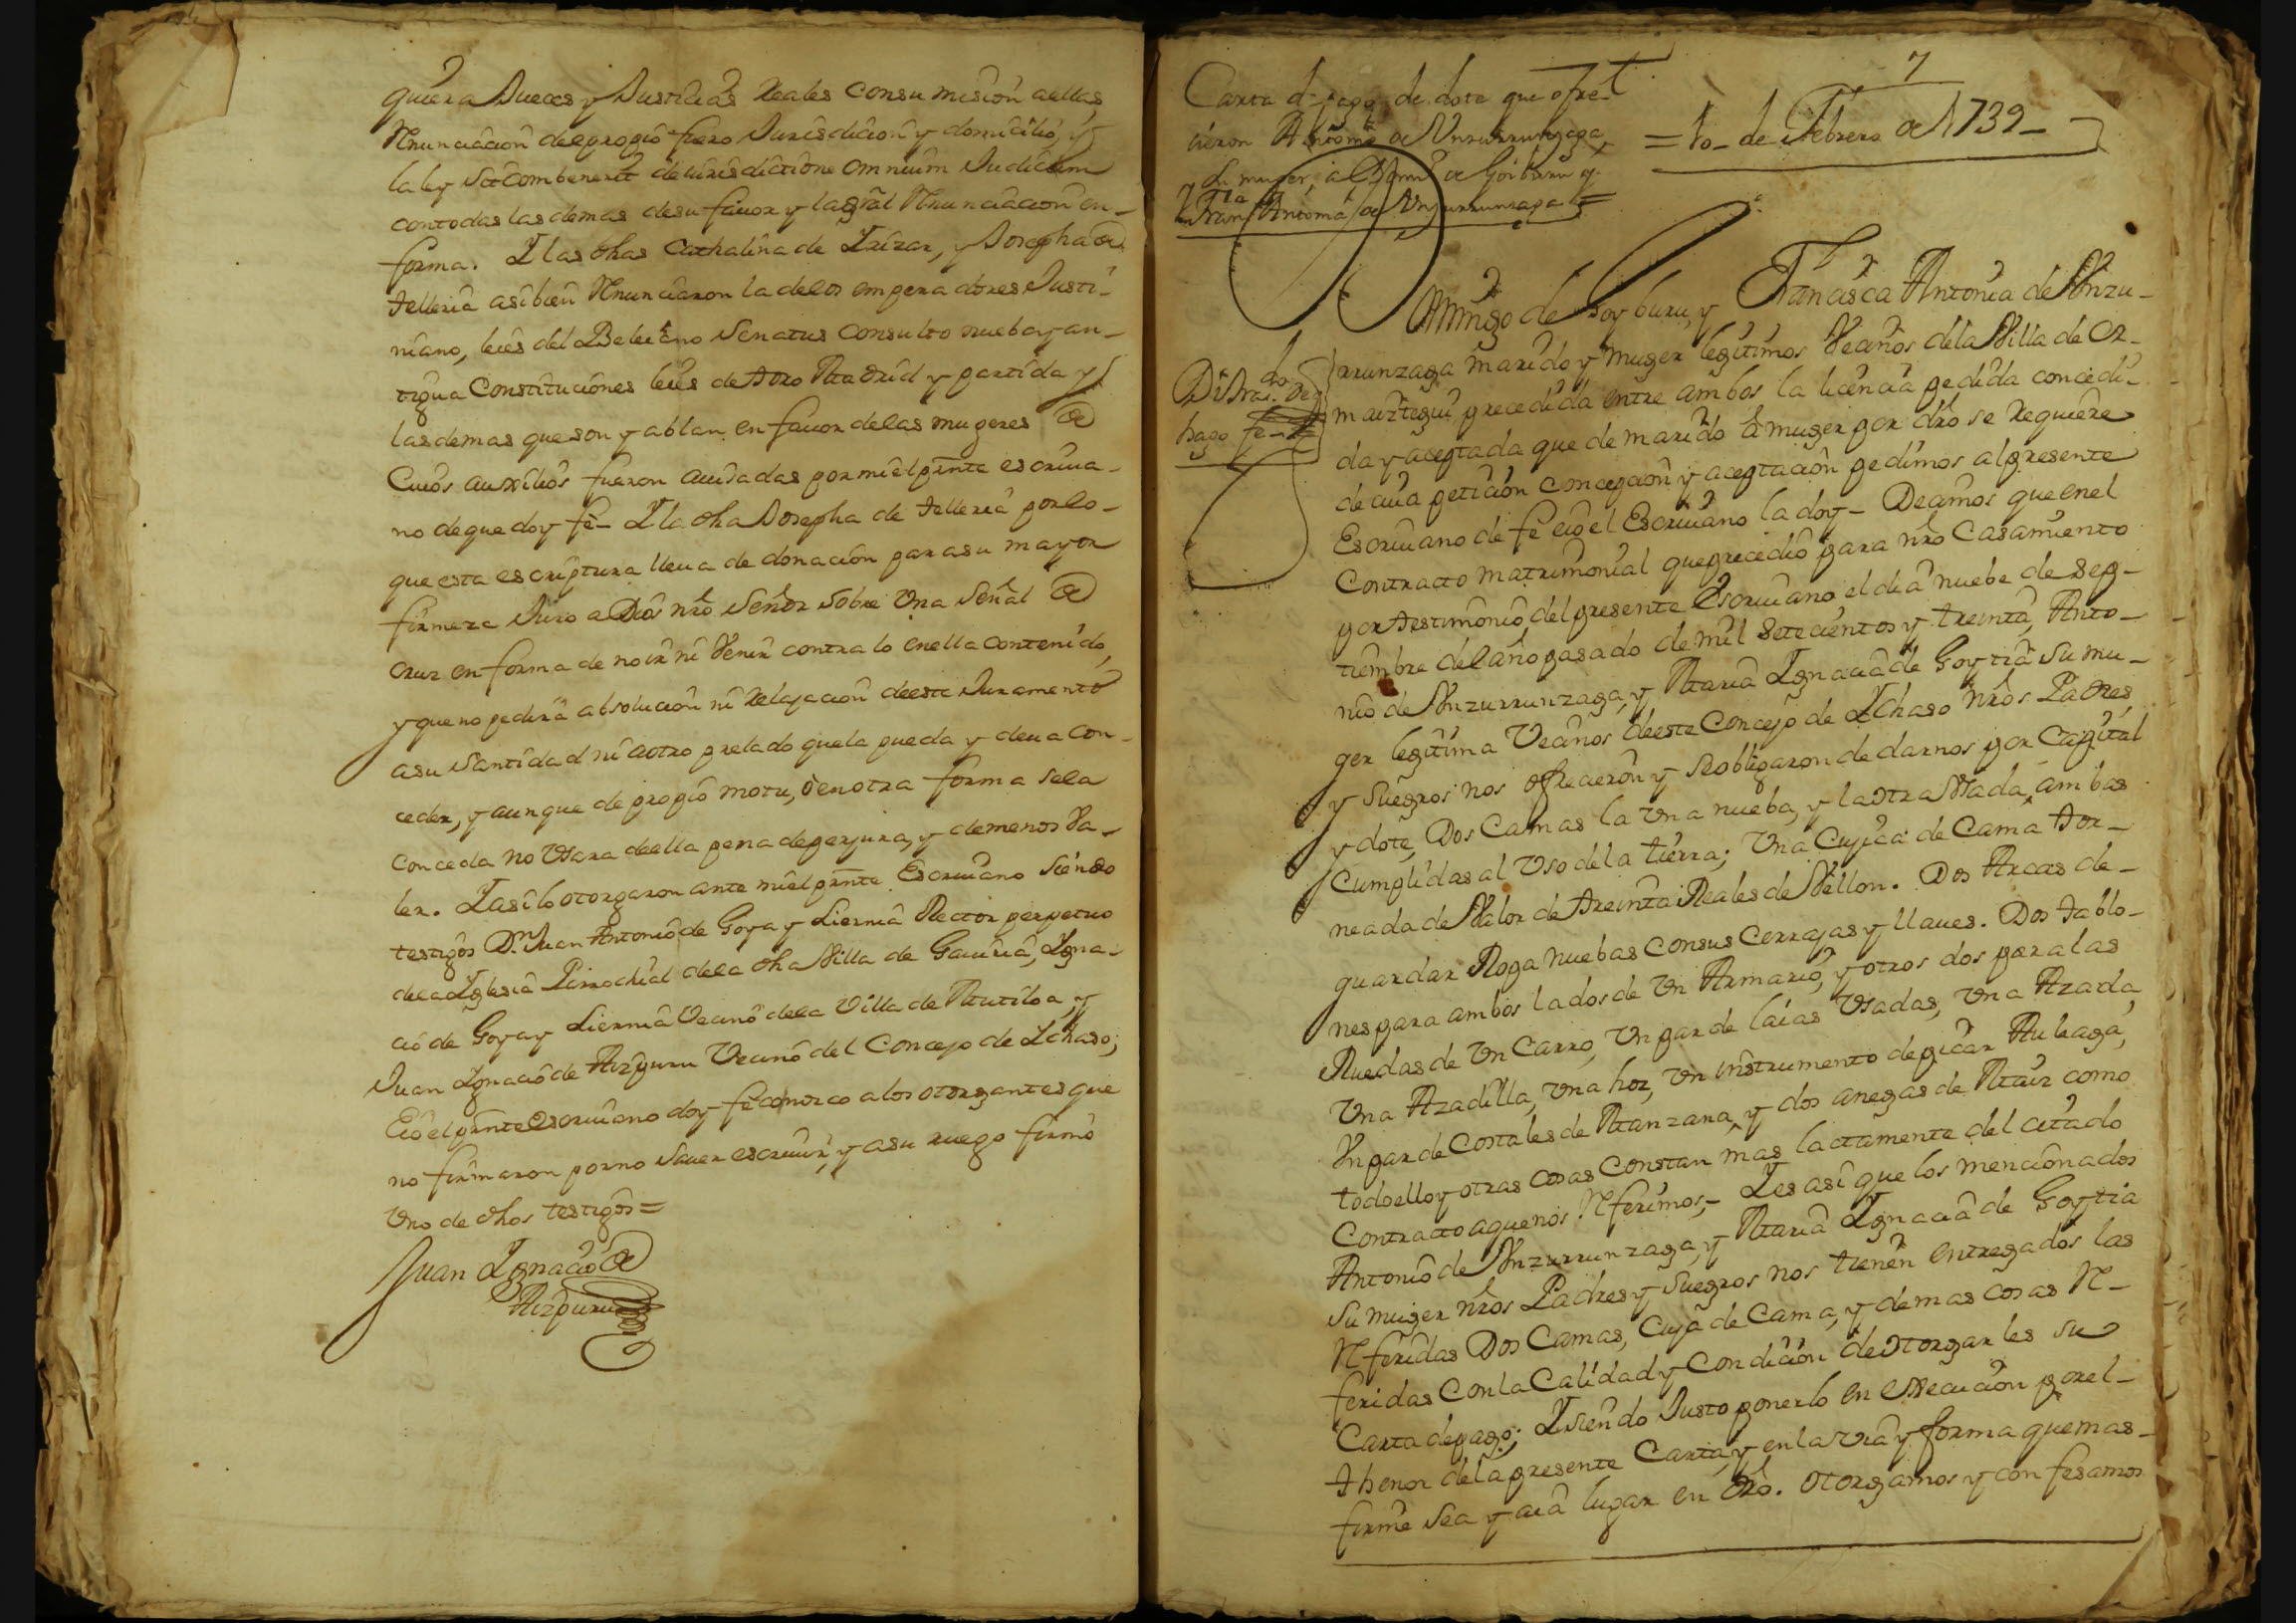 quiera Jueces y Justicias Reales con sumision a ellas,
Renunciacion del propio fuero Jurisdicion y domicilio, y
la ley Sit combenerit de iurisdictione omnium Judicum
con todas las demas de su fauor y la gral Renunciacion en
forma. Y las dhas Cathalina de Irizar, y Josepha de
Telleria asi bien Renunciaron la de los emperadores Justi-
niano, leies del Beleiano Senatus Consulto nueba y an-
tigua Constituciones leies de Toro Madrid y partida y
las demas que son y ablan en fauor de las mugeres de
Cuios auxilios fueron auisadas por mi el prnte escriua-
no de que doy fe- Y la dha Josepha de Telleria por lo-
que esta escriptura lleua de donacion para su mayor
firmeza Juro a Dios nro Señor sobre Una Señal de
cruz en forma de no ir ni Venir contra lo en ella contenido,
y que no pedira absolucion ni relajacion de este Juramento
a su Santidad ni a otro prelado que la pueda y deua con-
ceder, y aunque de propio motu, ò en otra forma se la
conceda no Usara de ella pena de perjura, y de menos Va-
ler. Y asi lo otorgaron ante mi el prnte Escriuano siendo
testigos Dn. Juan Antonio de Goya y Liernia Rector perpetuo
de la Iglesia Parrochial de la dha Villa de Gauiria, Igna-
cio de Goya y Liernia Vecino de la Villa de Mutiloa, y
Juan Ignacio de Aizpuru Vecino del Concejo de Ichaso;
E io el prnte escriuano doy fe conozco a los otorgantes que
no firmaron por no Sauer escriuir, y a su ruego firmó
Uno de dhos testigos =
Juan Ignacio de
Aizpuru
7
Carta de pago de dote que ofre-
cieron Antonio de Unzurrunzaga,
y su muger, a Domingo de Goiburu y
Franca Antonia de Unzurrunzaga =
= 10_ de Febrero de 1739_
Domingo de Goyburu, y Francisca Antonia de Vnzu-
rrunzaga marido y muger legitimos Vecinos de la Villa de Or-
maiztegui precedida entre ambos la licencia pedida concedi-
da y aceptada que de marido à muger por dro se requiere
de cuia peticion concepcion y aceptacion pedimos al presente
Escriuano de fe e io el Escriuano la doy- Decimos que en el
Contracto matrimonial que precedio para nro Casamiento
por testimonio del presente Escriuano, el dia nuebe de Sep-
tiembre del año pasado de mil Setecientos y treinta, Anto-
nio de Vnzurrunzaga, y Maria Ignacia de Goytia Su mu-
ger legitima Vecinos de este Concejo de Ichaso nros Padres,
y Suegros nos ofrecieron y se obligaron de darnos por Capital
y dote, Dos Camas la Una nueba, y la otra Usada, ambas
Cumplidas al Uso de la tierra; Una Cujica de Cama tor-
neada de Valor de treinta Reales de Vellon. Dos Arcas de-
guardar Ropa nuebas con sus Cerrajas y llaues. Dos Tablo-
nes para ambos lados de Un Armario, y otros dos para las
Ruedas de Un Carro, Un par de laias Usadas, Una Azada,
Una Azadilla, Una hoz, Un instrumento de picar Aulaga,
Un par de Costales de Manzana, y dos anegas de Maiz como
todo ello y otras cosas Constan mas lactamente del citado
Contracto a que nos Referimos,- Y es asi que los mencionados
Antonio de Vnzurrunzaga, y Maria Ignacia de Goytia
Su muger nros Padres y Suegros nos tienen entregados las
Referidas Dos Camas, Cuja de Cama, y demas cosas Re-
feridas Con la Calidad y Condicion de otorgarles su
Carta de pago; Y siendo Justo ponerlo en execucion por el-
thenor de la presente Carta, y en la via y forma que mas-
firme Sea y aia lugar en dro. otorgamos y confesamos